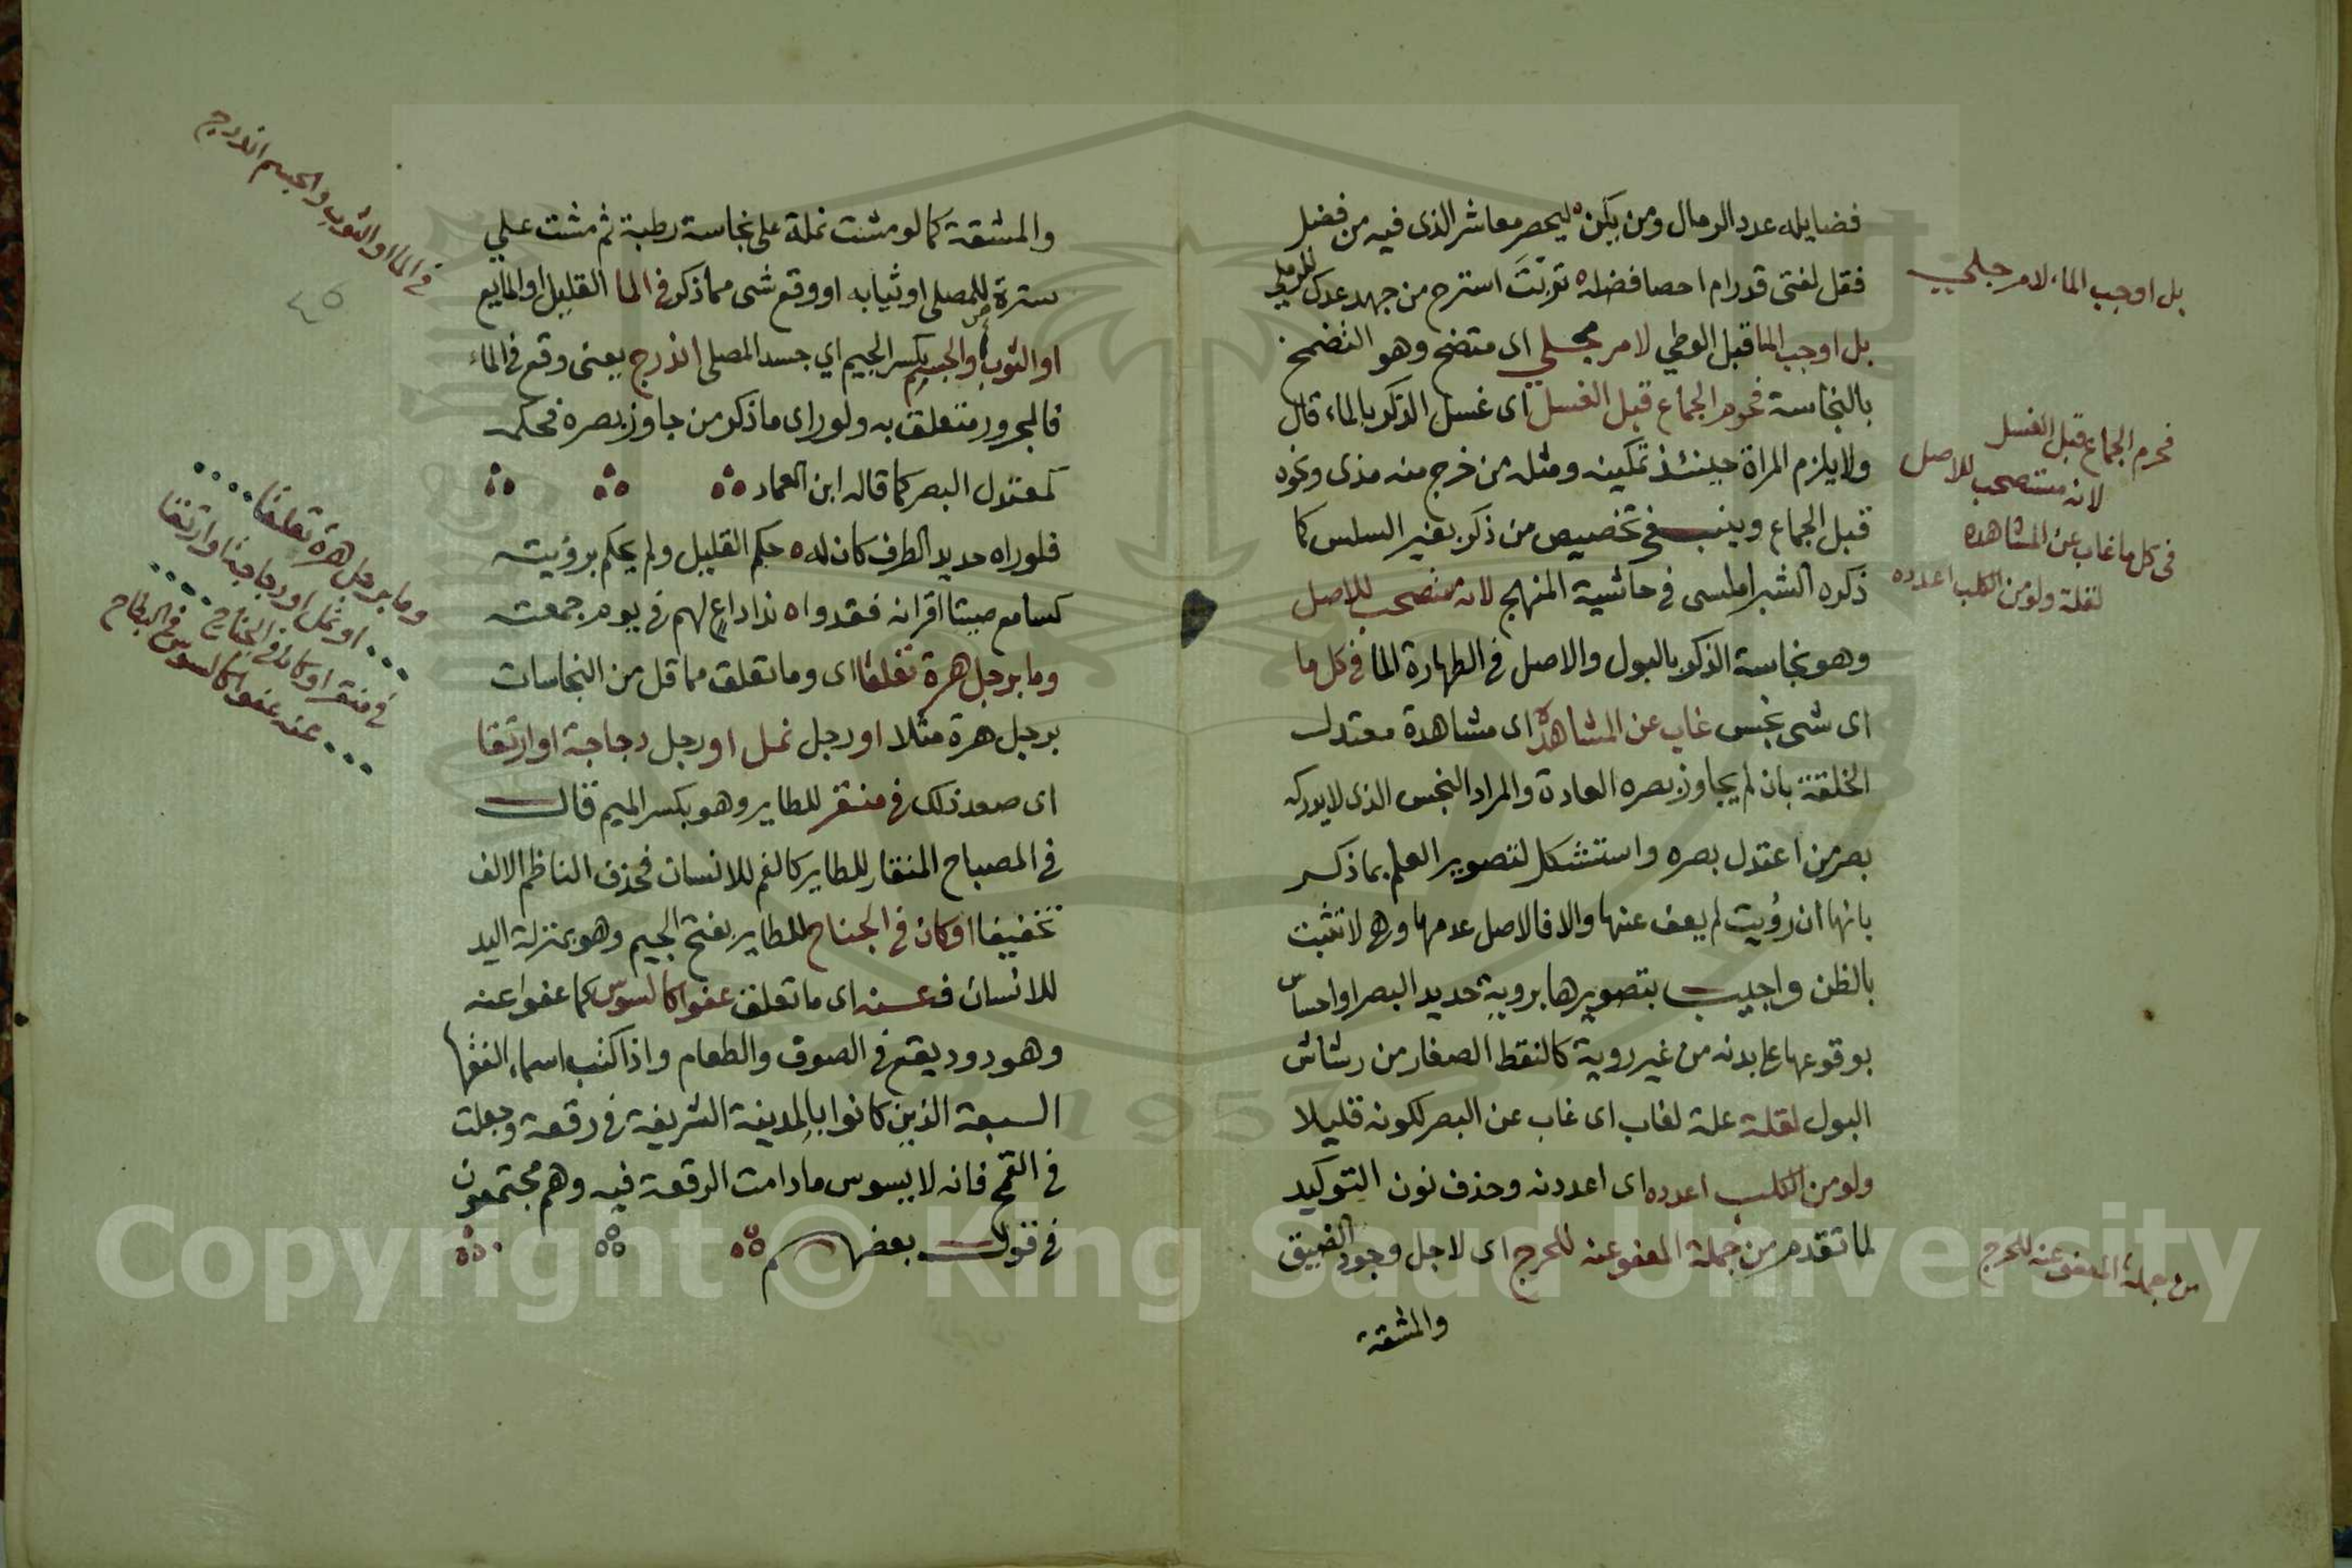 فضايله عدد الرمال ومن يكن ليحصر معاشر الذى فيه من فضل
فقل لفتى قد رام احصا فضله تربت استرح من جهد عدك للرمل
بل اوجب الما قبل الوطي لامر جلي اى متضح وهو التضمخ
بالنجاسة فحرم الجماع قبل الغسل اى غسل الذكر بالماء قال
ولا يلزم المراة حينئذ تمكينه ومثله من خرج منه مذى ونحوه
قبل الجماع وينبغى تخصيص من ذكر بغير السلس كما
ذكره الشبراملسى فى حاشية المنهج لانه مستصحب للاصل
وهو نجاسة الذكر بالبول والاصل فى الطهارة الما فى كل ما
اى شى نجس غاب عن المشاهده اى مشاهدة معتدل
الخلقة بان لم يجاوز بصره العادة والمراد النجس الذى لا يدركه
بصر من اعتدل بصره واستشكل لتصوير العلم بما ذكر
بانها ان رؤيت لم يعف عنها والا فالاصل عدمها وهى لا تثبت
بالظن واجيب بتصويرها بروية حديد البصر او احساس
بوقوعها على بدنه من غير روية كالنقط الصغار من رشاش
البول لقلة علة لغاب اى غاب عن البصر لكونه قليلا
ولو من الكلب اعدده اى اعددنه وحذف نون التوكيد
لما تقدم من جملة المعفو عنه للحرج اى لاجل وجود الضيق
والمشقة
بل اوجب الماء لامر جلي
فحرم الجماع قبل الغسل
لانه مستصحب للاصل
فى كل ما غاب عن المشاهده
لقلة ولو من الكلب اعدده
من جملة المعفو عنه للحرج
والمشقة كما لو مشت نملة على نجاسة رطبة ثم مشت علي
سترة للمصلى او ثيابه او وقع شى مما ذكر فى الما القليل او المايع
او الثوب والجسم بكسر الجيم اي جسد المصلى اندرج يعنى وقع فى الماء
فالمجرور متعلق به ولو راى ما ذكر من جاوز بصره فحكمه
كمعتدل البصر كما قاله ابن العماد
فلو راه حديد الطرف كان له حكم القليل ولم يحكم برؤيته
كسامع صيتا اقرانه فقدوا ندا داع لهم فى يوم جمعته
وما برجل هرة تعلقا اى وما تعلق مما قل من النجاسات
برجل هرة مثلا او رجل نمل او رجل دجاجة او ارتقا
اى صعد ذلك فى منقر للطاير وهو بكسر الميم قال
فى المصباح المنقار للطاير كالفم للانسان فحذف الناظم الالف
تخفيفا او كان فى الجناح للطاير بفتح الجيم وهو بمنزلة اليد
للانسان فعنه اى ما تعلق عفوا كالسوس كما عفوا عنه
وهو دود يقع فى الصوف والطعام واذا كتب اسماء الفقها
السبعة الذين كانوا بالمدينة الشريفة فى رقعة وجعلت
فى القمح فانه لا يسوس ما دامت الرقعة فيه وهم مجتمعون
فى قول بعضهم
فى الما او الثوب والجسم اندرج
وما برجل هرة تعلقا
او نمل او دجاجة او ارتقا
فى منقر او كان فى الجناح
عنه عفوا كالسوس فى